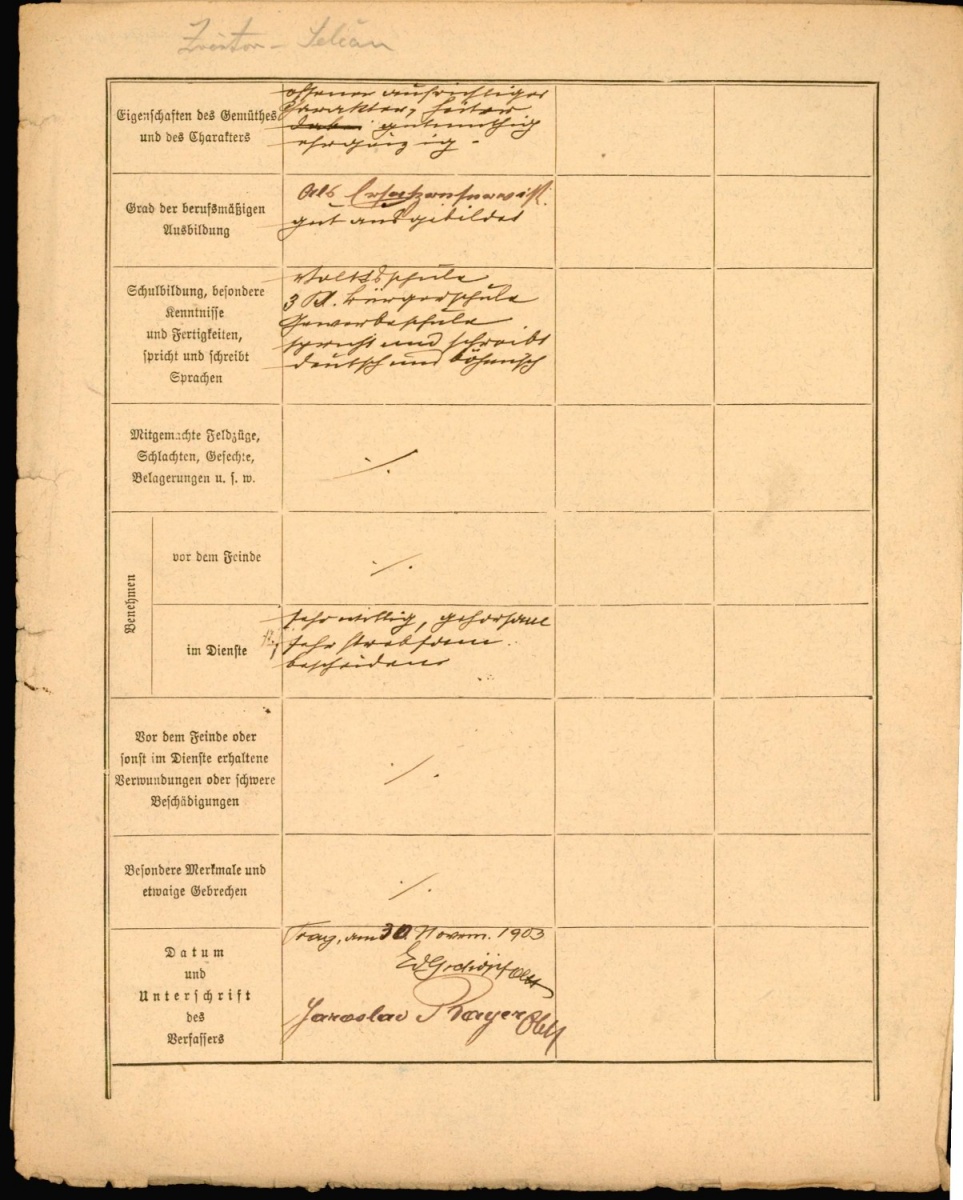 Eigenschaften des Gemüthes
und des Charakters
offener aufrichtiger
Charakter, heiter
gutmüthig
ehrgeizig.
Grad der berufsmäßigen
Ausbildung
Als
gut ausgebildet
Schulbildung, besondere
Kenntnisse
und Fertigkeiten,
spricht und schreibt
Sprachen
Volksschule
3 Kl. Bürgerschule
Gewerbeschule
spricht und schreibt
deutsch und böhmisch
Mitgemachte Feldzüge,
Schlachten, Gefechte,
Belagerungen u. s. w.
./.
Benehmen
vor dem Feinde
./.
im Dienste
sehr willig, gehorsam
sehr strebsam
bescheiden
Vor dem Feinde oder
sonst im Dienste erhaltene
Verwundungen oder schwere
Beschädigungen
./.
Besondere Merkmale und
etwaige Gebrechen
./.
Datum
und
Unterschrift
des
Verfassers
Prag, am 30 Novem. 1903
Jaroslav Bayer